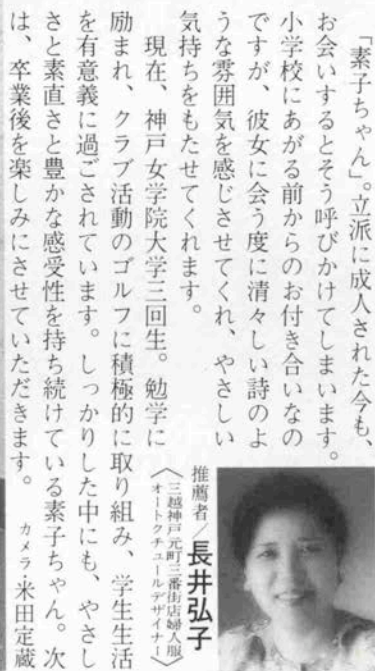 「素子ちゃん」。立派に成人された今も、
お会いするとそう呼びかけてしまいます。
小学校にあがる前からのお付き合いなの
ですが、彼女に会う度に清々しい詩のよ
うな雰囲気を感じさせてくれ、やさしい
気持ちをもたせてくれます。
現在、神戸女学院大学三回生。勉学に
励まれ、クラブ活動のゴルフに積極的に取り組み、学生生活
を有意義に過ごされています。しっかりした中にも、やさし
さと素直さと豊かな感受性を持ち続けている素子ちゃん。次
は、卒業後を楽しみにさせていただきます。
カメラ・米田定蔵
推薦者/長井弘子
〈三越神戸元町三番街店婦人服
オートクチュールデザイナー〉